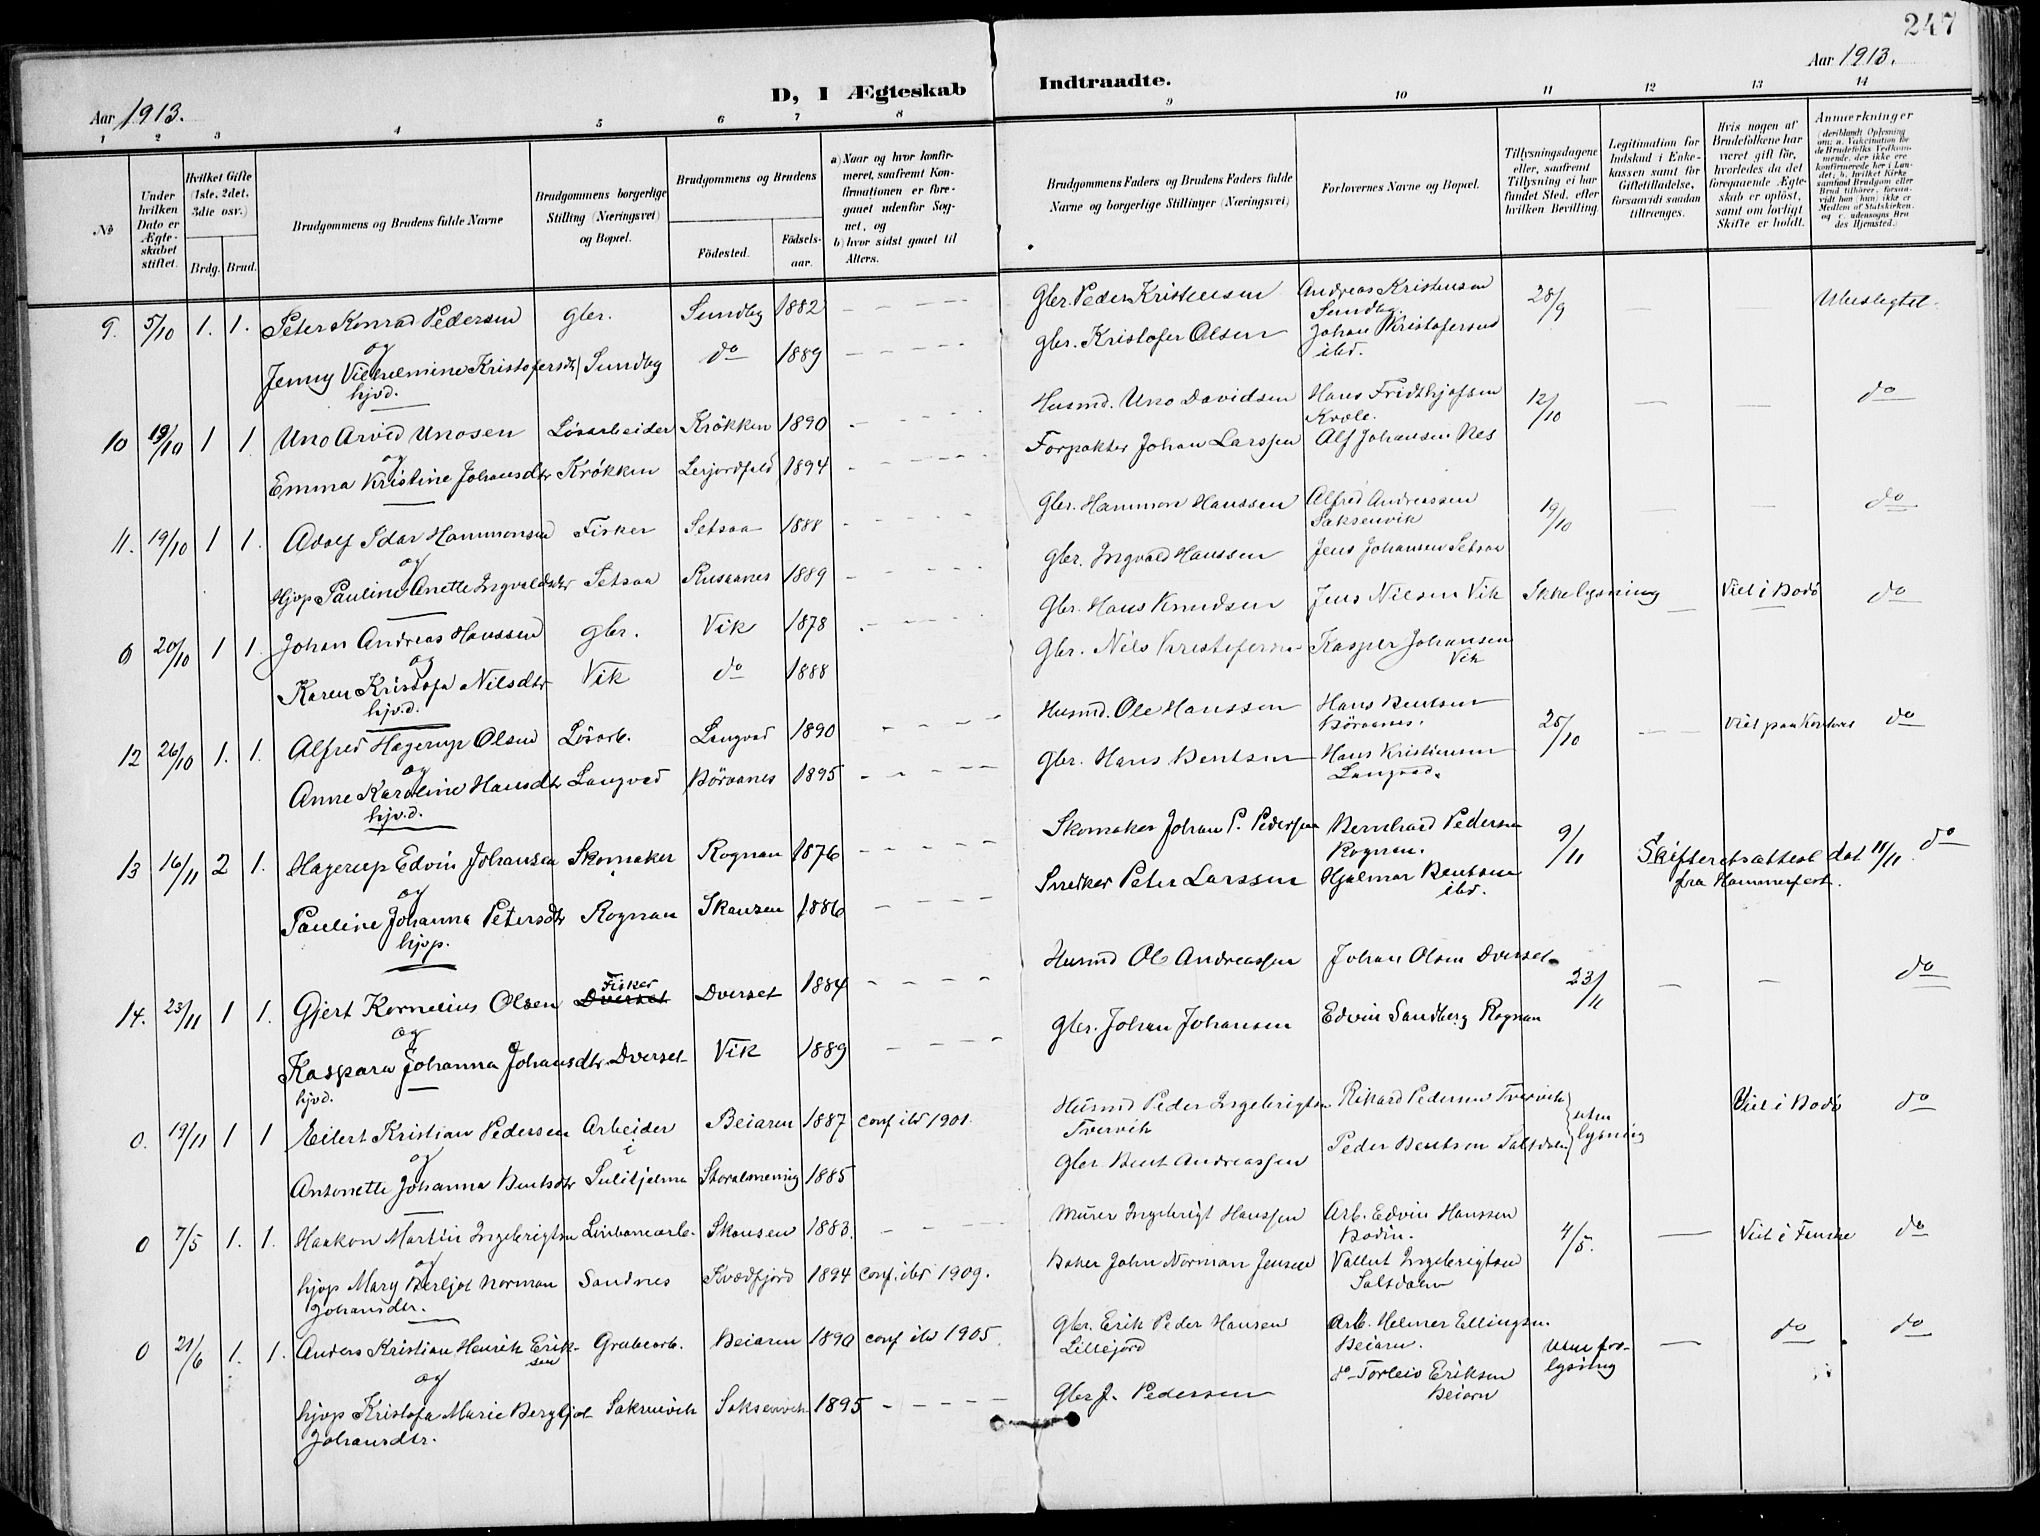 247
Aar 1913.
D, I Ægteskab Indtraadte.
Aar 1913.
1 2 3 4 5 6 7 8 9 10 11 12 13 14
No
Under hvilken Dato er Ægteskabet stiftet.
Hvilket Gifte (1ste, 2det, 3die osv.)
Brdg. Brud.
Brudgommens og Brudens fulde Navne
Brudgommens borgerlige Stilling (Næringsvei) og Bopæl.
Brudgommens og Brudens
Födested. Födselsaar.
a) Naar og hvor konfirmeret, saafremt Konfirmationen er foregaaet udenfor Sognet, og
b) hvor sidst gaaet til Alters.
Brudgommens Faders og Brudens Faders fulde Navne og borgerlige Stillinger (Næringsvei)
Forlovernes Navne og Bopæl.
Tillysningsdagene eller, saafremt Tillysning ei har fundet Sted, efter hvilken Bevilling.
Legitimation for Indskud i Enkekassen samt for Giftetilladelse, forsaavidt saadan tiltrænges.
Hvis nogen af Brudefolkene har været gift för, hvorledes da det foregaaende Ægteskab er oplöst, samt om lovligt Skifte er holdt.
Anmærkninger
(deriblandt Oplysning om: a. Vakcination for de Brudefolks Vedkommende, der ikke ere konfirmerede her i Landet; b. hvilket Kirkesamfund Brudgom eller Brud tilhörer, forsaavidt han (hun) ikke er Medlem af Statskirken, og c. udensogns Brudes Hjemsted.)
9. 5/10 1. 1. Peter Konrad Pedersen gbr. Sundby 1882 Gbr. Peder Kristensen Andreas Kristensen Sundby 28/9 — Ubeslegtet.
og
Jenny Vilhelmine Kristofersdtr Sundby do 1889 gbr. Kristofer Olsen Johan Kristofersen ibd.
hjvd.
10 19/10 1 1. Uno Arvid Unosen Lösarbeider Krökken 1890 Husmd. Uno Davidsen Hans Fridthjofsen Kvæle. 12/10 — — do
og
Emma Kristine Johansdtr Krökken Lerjordfald 1894 Forpakter Johan Larssen Alf Johansen Nes
11. 19/10 1 1. Adolf Idar Hammonsen Fisker Setsaa 1888 Gbr. Hammon Hanssen Alfred Andreassen Saksenvik 19/10 — — do
og
Hjvp Pauline Anette Ingvaldsdtr Setsaa Rusaanes 1889 gbr. Ingvald Hanssen Jens Johansen Setsaa
0 20/10 1 1. Johan Andreas Hanssen gbr. Vik 1878 Gbr. Hans Knudsen Jens Nilsen Vik Ikke lysning — Viet i Bodö do
og
Karen Kristofa Nilsdtr Vik do 1888 Gbr. Nils Kristofersen Kasper Johansen Vik
hjv.d.
12 26/10 1. 1. Alfred Hagerup Olsen Lösarb. Langvad 1890 Husmd. Ole Hanssen Hans Bentsen Börvanes. 25/10 — Viet paa do
og
Anne Karoline Hansdtr Langvad Börvanes 1895 Gbr. Hans Bentsen Hans Kristiansen Langvad.
hjv.d.
13 16/11 2 1. Hagerup Edvin Johansen Skomaker Rognan 1876 Skomaker Johan P. Pedersen Bernhard Pedersen Rognan. 9/11 Skifteretsattest dat 11/11 fra Hammerfest. do
og
Pauline Johanna Petersdtr Rognan Skansen 1886 Snedker Peter Larssen Hjalmar Bentsen ibd.
hjvp.
14. 23/11 1 1. Gjert Kornelius Olsen Fisker Dverset Dverset 1884 Husmd Ole Andreassen Johan Olsen Dverset 23/11 — — do
og
Kaspara Johanna Johansdtr. Dverset Vik 1889 gbr. Johan Johansen Edvin Sandberg Rognan
hjvd.
0. 19/11 1 1 Eilert Kristian Pedersen Arbeider Beiaren 1887 conf ibd 1901. Husmd Peder Ingebrigtsen Tvervik Rikard Pedersen Tvervik uten lysning Viet i Bodö do
og i
Antonette Johanna Bentsdtr Sulitjelma Storalmening 1885 Gbr Bent Andreassen Peder Bentsen Saltdalen
0 7/5 1. 1. Haakon Martin Ingebrigtsen Linbanearb. Skansen 1883. Murer Ingebrigt Hanssen Arb. Edvin Hanssen Bodin. 4/5. — Viet i Fauske do
og
hjvp Mary Berljot Norman Johansdtr. Sandnes Kvædfjord 1894 conf. ibd 1909. Baker John Norman Jensen Vallert Ingebrigtsen Saltdalen
0 21/6 1. 1. Anders Kristian Henrik Eriksen Grubearb. Beiaren 1890 conf ibd 1905. Gbr. Erik Peder Hansen Lillejord Arb. Helmer Ellingsen. Beiarn. Uten forlysning — do do
og
hjvp Kristofa Marie Bergljot Johansdtr. Saksenvik Saksenvik 1895 Gbr J. Pedersen do Torleiv Eriksen Beiarn